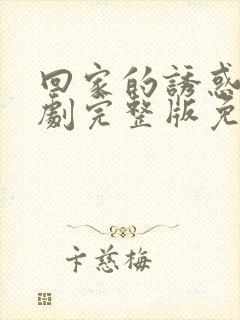 回家的誘惑
劇完整版免
卞慈梅